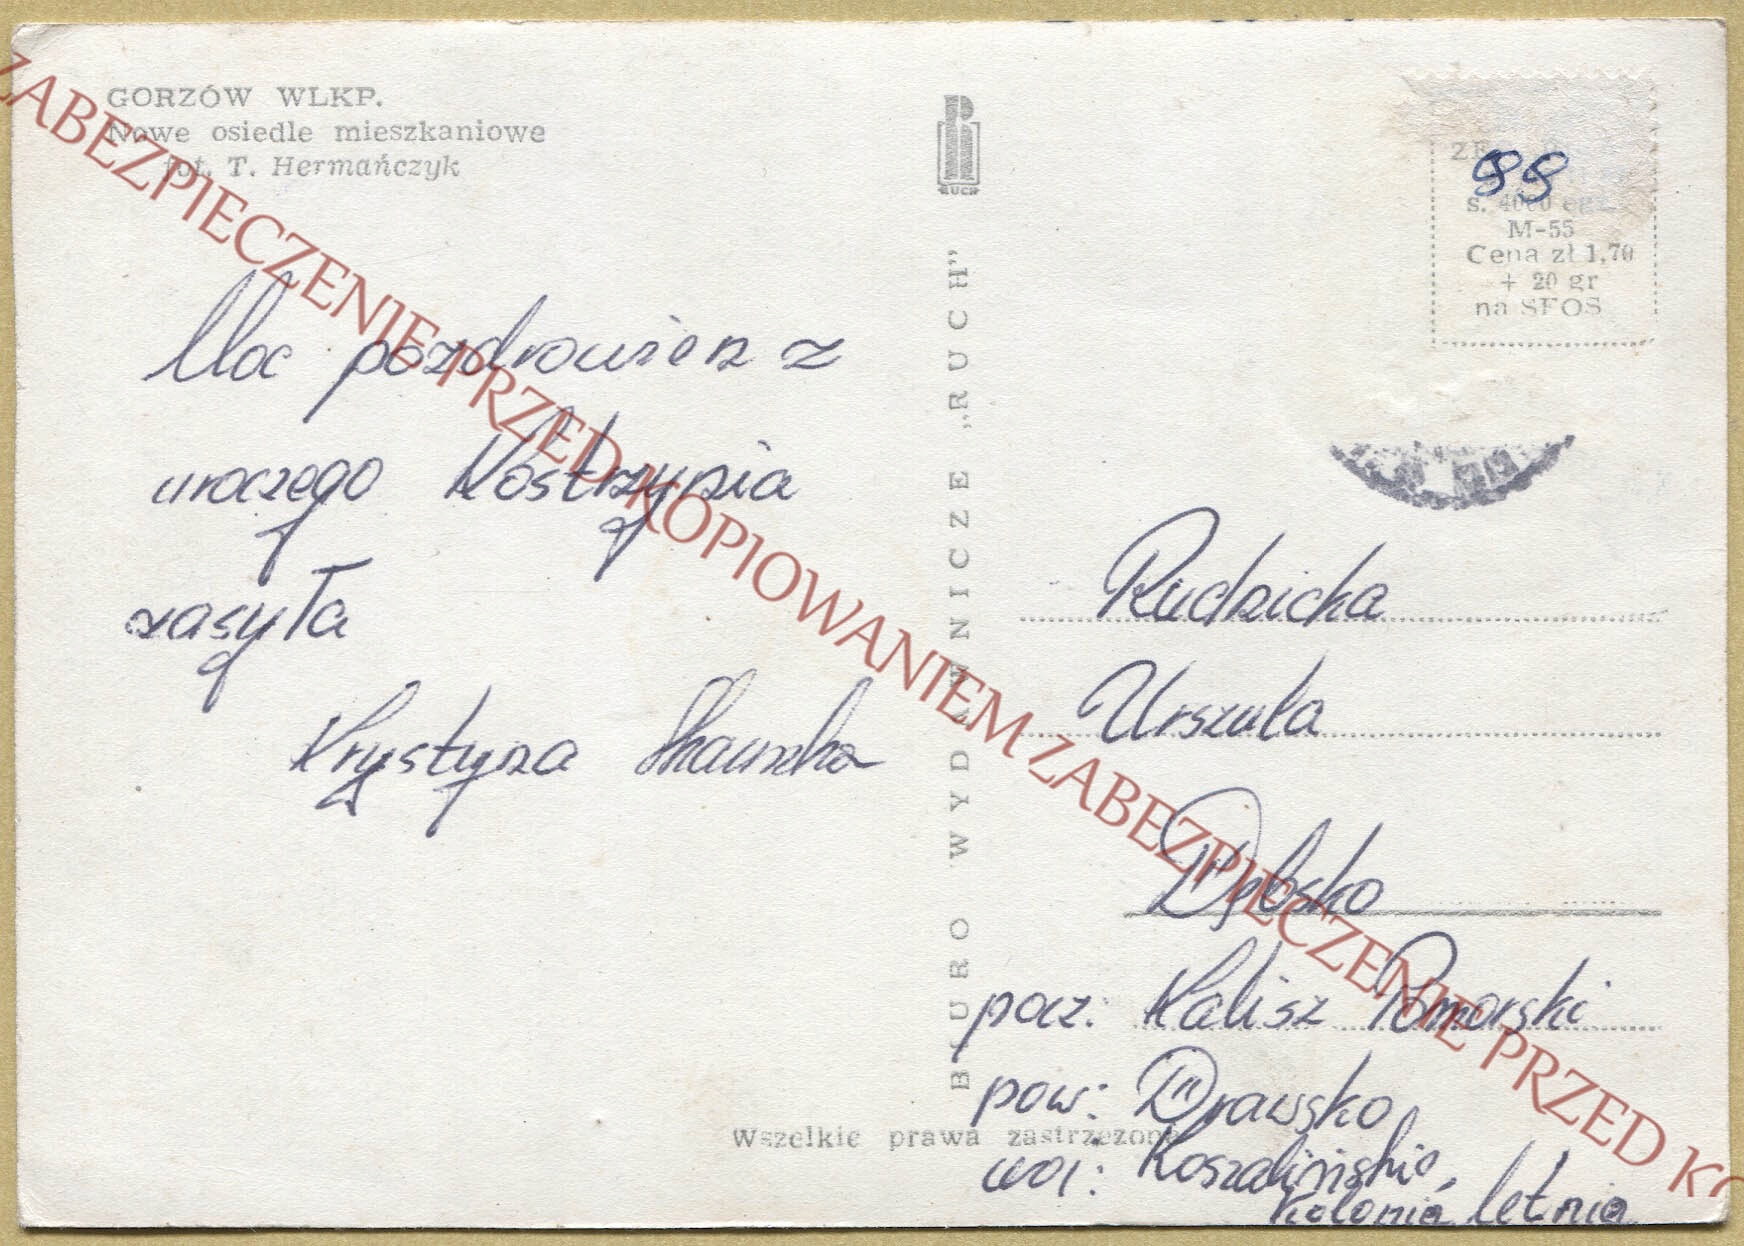 GORZÓW WLKP.
Nowe osiedle mieszkaniowe
fot. T. Hermańczyk
Moc pozdrowien z
uroczego Kostrzynia
zasyła
Krystyna
RUCH
BIURO WYDAWNICZE „RUCH"
99
s. 4000 egz.
M-55
Cena zł 1,70
+ 20 gr
na SFOS
Rudzicka
Urszula
Dębsko
pocz: Kalisz Pomorski
pow: Drawsko,
woj: Koszalińskie,
Kolonia letnia
Wszelkie prawa zastrzeżone
ZABEZPIECZENIE PRZED KOPIOWANIEM ZABEZPIECZENIE PRZED KO